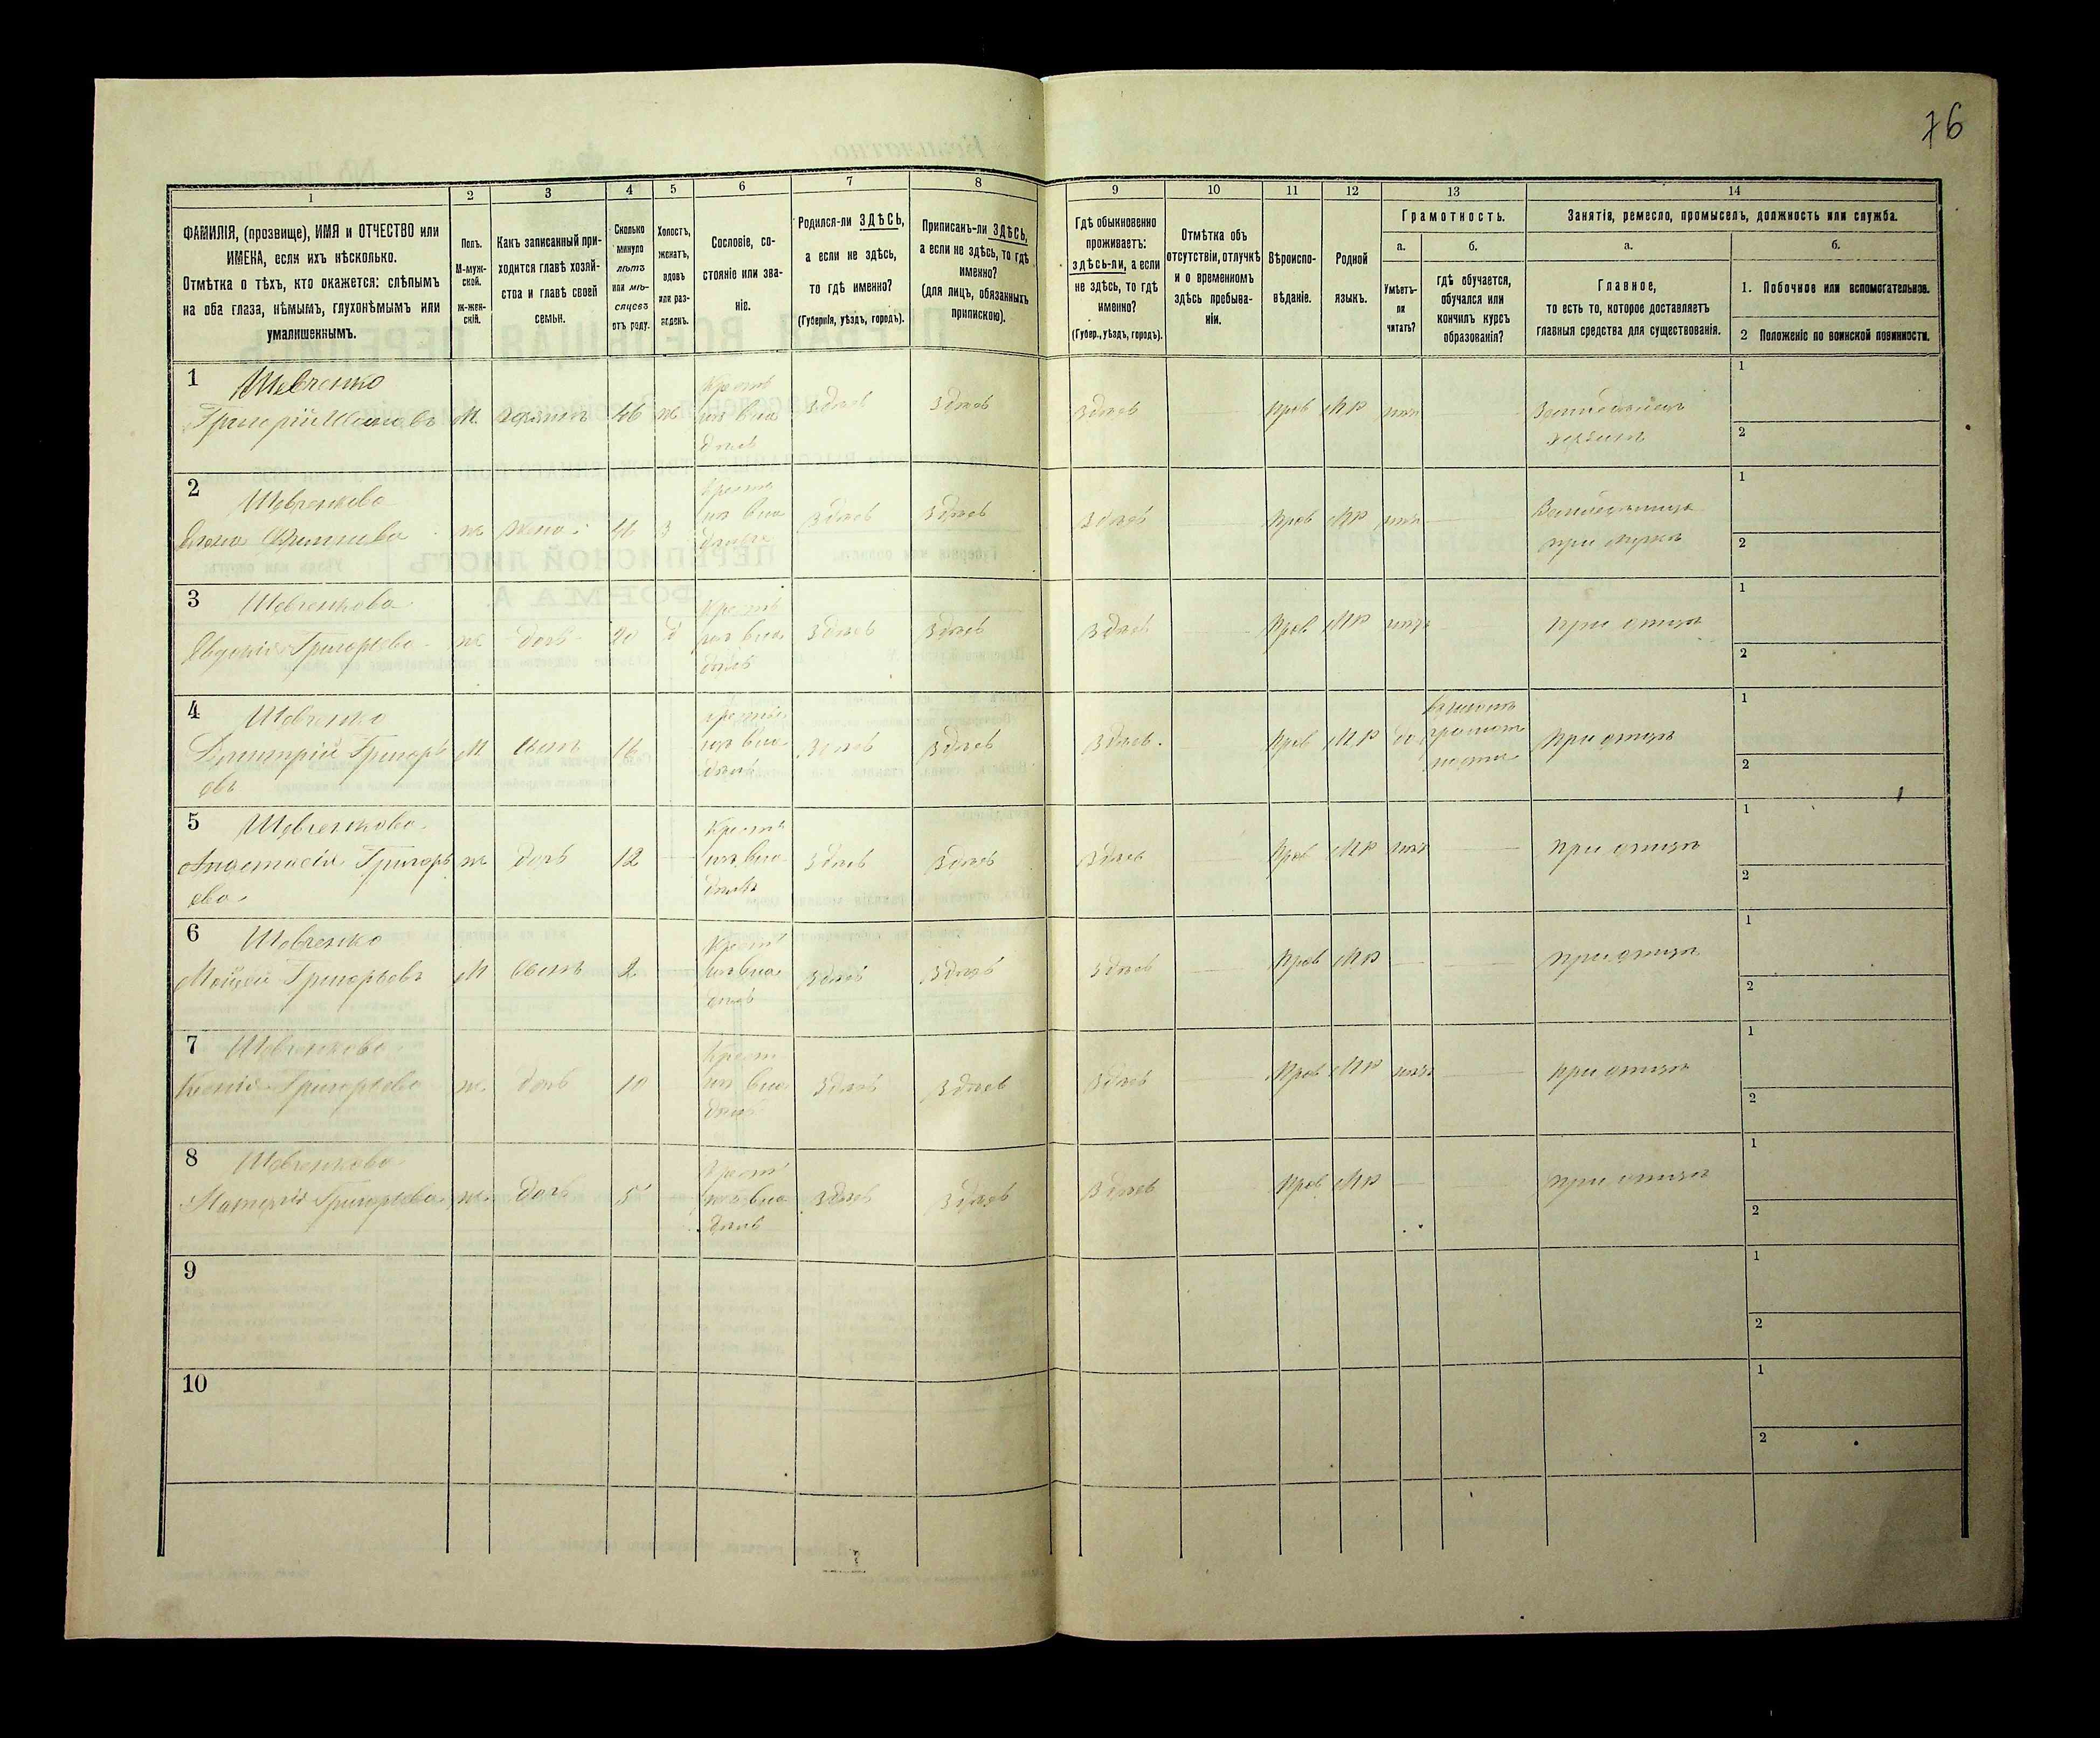 76
1
2
3
4
5
6
7
8
9
10
11
12
13
14
ФАМИЛІЯ, (прозвище), ИМЯ и ОТЧЕСТВО или
ИМЕНА, если ихъ нѣсколько.
Отмѣтка о тѣхъ, кто окажется: слѣпымъ
на оба глаза, нѣмымъ, глухонѣмымъ или
умалишеннымъ.
Полъ.
М-муж-
ской.
Ж-жен-
скій.
Какъ записанный при-
ходится главѣ хозяй-
ства и главѣ своей
семьи.
Сколько
минуло
лѣтъ
или мѣ-
сяцевъ
отъ роду.
Холостъ,
женатъ,
вдовъ
или раз-
веденъ.
Сословіе, со-
стояніе или зва-
ніе.
Родился-ли ЗДѢСЬ,
а если не здѣсь,
то гдѣ именно?
(Губернія, уѣздъ, городъ).
Приписанъ-ли ЗДѢСЬ,
а если не здѣсь, то гдѣ
именно?
(для лицъ, обязанныхъ
припискою).
Гдѣ обыкновенно
проживаетъ:
здѣсь-ли, а если
не здѣсь, то гдѣ
именно?
(Губер., уѣздъ, городъ).
Отмѣтка объ
отсутствіи, отлучкѣ
и о временномъ
здѣсь пребыва-
ніи.
Вѣроиспо-
вѣданіе.
Родной
языкъ.
Грамотность.
а.
б.
Умѣетъ-
ли
читать?
гдѣ обучается,
обучался или
кончилъ курсъ
образованія?
Занятія, ремесло, промыселъ, должность или служба.
а.
б.
Главное,
то есть то, которое доставляетъ
главныя средства для существованія.
1. Побочное или вспомогательное.
2 Положеніе по воинской повинности.
1 Шевченко
Григорій М. хозяинъ 46 ж. Крест. изъ вла дѣл. здѣсь здѣсь здѣсь Прав МР нѣтъ Земледѣлецъ хозяинъ
1
2
2 Шевченкова
ж. жена 46 З Крест. изъ вла дѣл. здѣсь здѣсь здѣсь Прав МР нѣтъ при мужѣ
1
2
3 Шевченкова
Евдокія Григорьева ж. дочь 20 д Крест. изъ вла дѣл. здѣсь здѣсь здѣсь Прав МР нѣтъ при отцѣ
1
2
4 Шевченко
Димитрій Григорь М сынъ 16 Крест. изъ вла дѣл. здѣсь здѣсь здѣсь Прав МР да при отцѣ
евъ
1
2
5 Шевченкова
Анастасія Григорь ж. дочь 12 Крест. изъ вла дѣл. здѣсь здѣсь здѣсь Прав МР нѣтъ при отцѣ
ева
1
2
6 Шевченко
Моисей Григорьевъ М сынъ 2 Крест. изъ вла дѣл. здѣсь здѣсь здѣсь Прав МР при отцѣ
1
2
7 Шевченкова
Ксенія Григорьева ж. дочь 10 Крест. изъ вла дѣл. здѣсь здѣсь здѣсь Прав МР нѣтъ при отцѣ
1
2
8 Шевченкова
Наталія Григорьева ж. дочь 5 Крест. изъ вла дѣл. здѣсь здѣсь здѣсь Прав МР при отцѣ
1
2
9
1
2
10
1
2